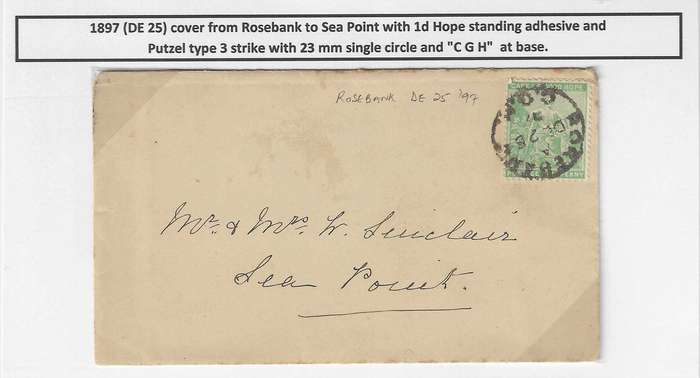 1897 (DE 25) cover from Rosebank to Sea Point with 1d Hope standing adhesive and
Putzel type 3 strike with 23 mm single circle and "C G H" at base.
ROSEBANK DE 25 '97
Mr. & Mrs. W. Sinclair
Sea Point.